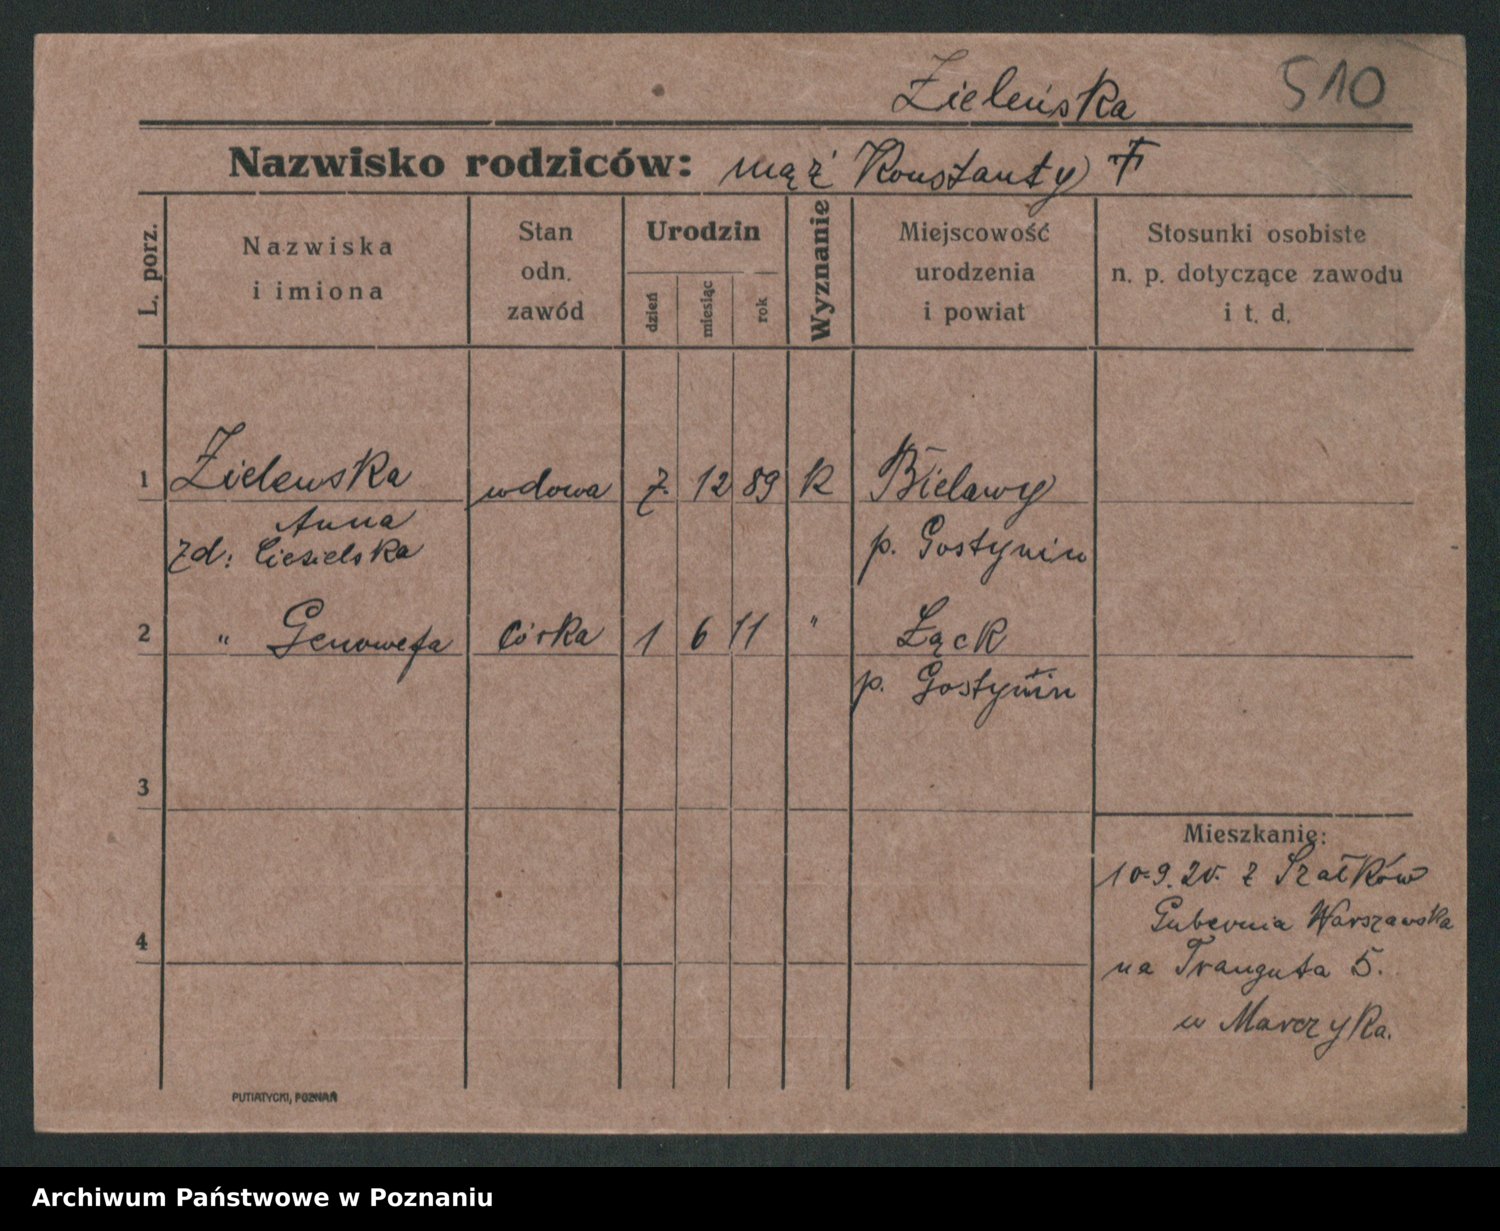 Zieleńska 510
Nazwisko rodziców: mąż Konstanty †
L. porz.
Nazwiska
i imiona
Stan
odn.
zawód
Urodzin
dzień
miesiąc
rok
Wyznanie
Miejscowość
urodzenia
i powiat
Stosunki osobiste
n. p. dotyczące zawodu
i t. d.
1 Zielenska wdowa 7. 12 89 K Bielawy
Anna
zd: Ciesielska p. Gostynin
2 " Genowefa córka 1 6 11 " Łąck
p. Gostynin
3
Mieszkanie:
10.9.20. z Szałków
Gubernia Warszawska
4
na Trauguta 5.
u Marczyka.
PUTIATYCKI, POZNAŃ
Archiwum Państwowe w Poznaniu